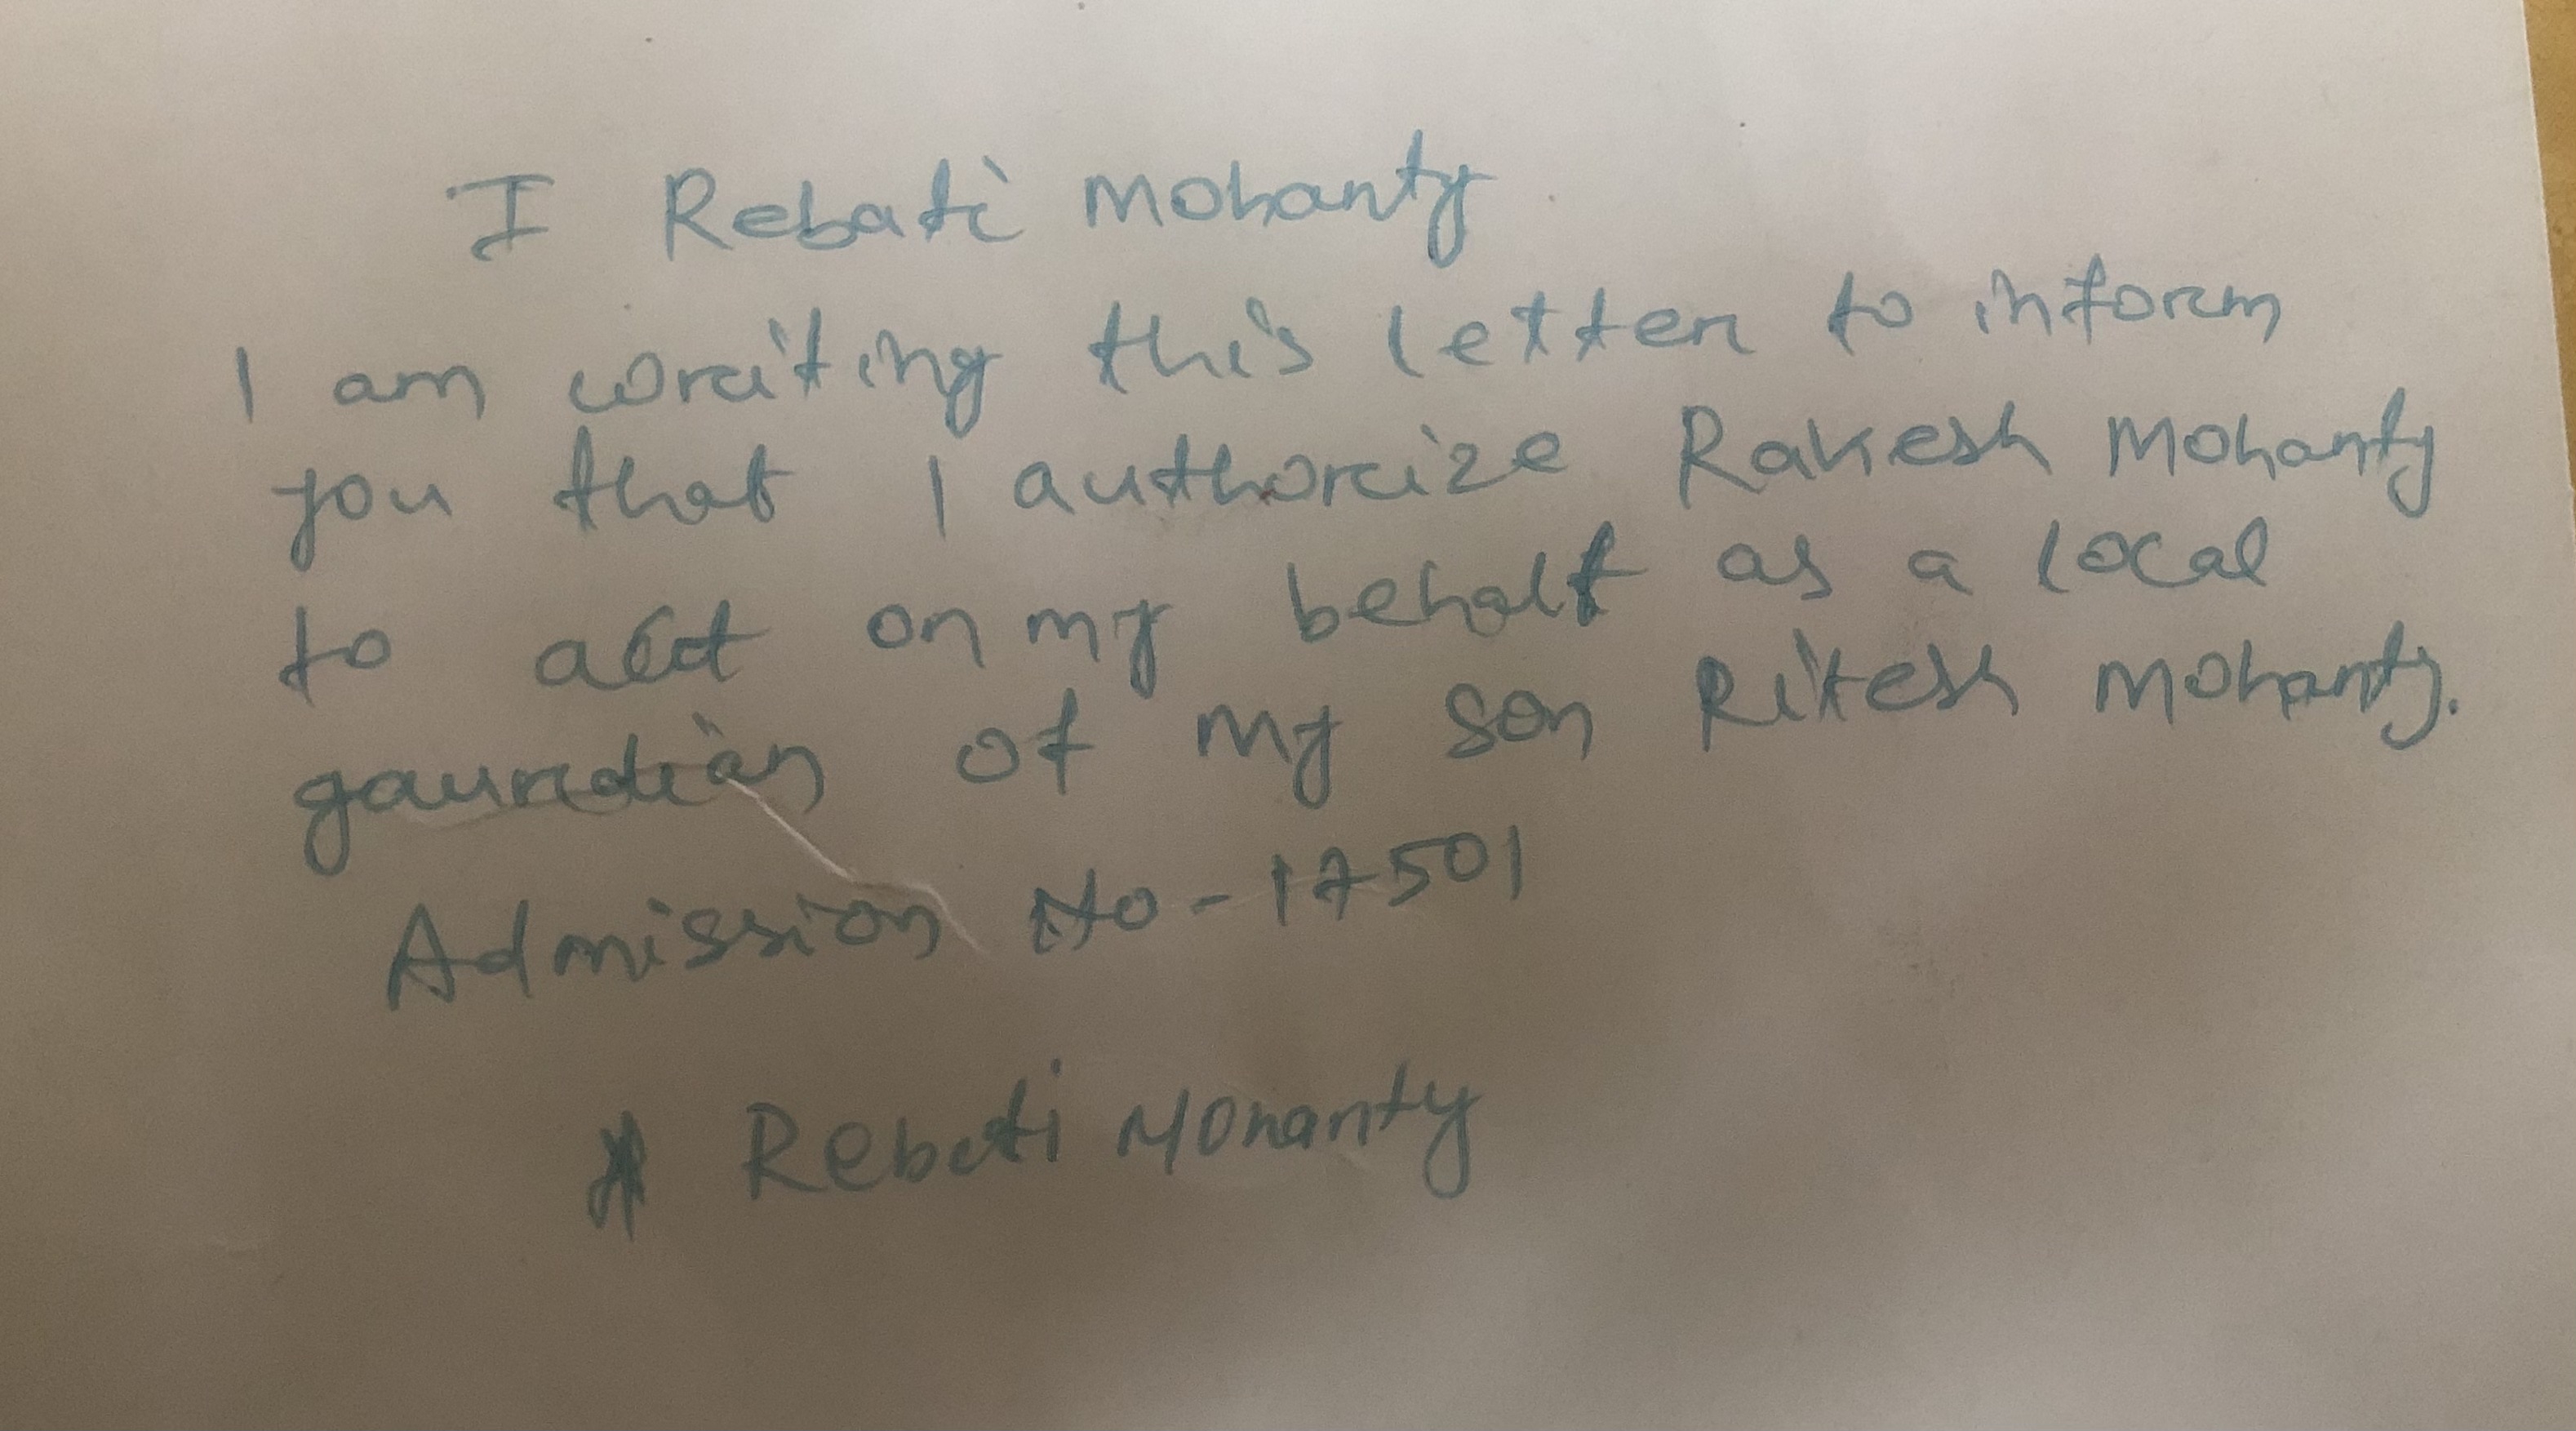 I Rebati Mohanty
I am writing this letter to inform
you that I authorize Rakesh Mohanty
to act on my behalf as a local
gaurdian of my son Ritesh Mohanty.
Admission No - 17501
* Rebati Mohanty